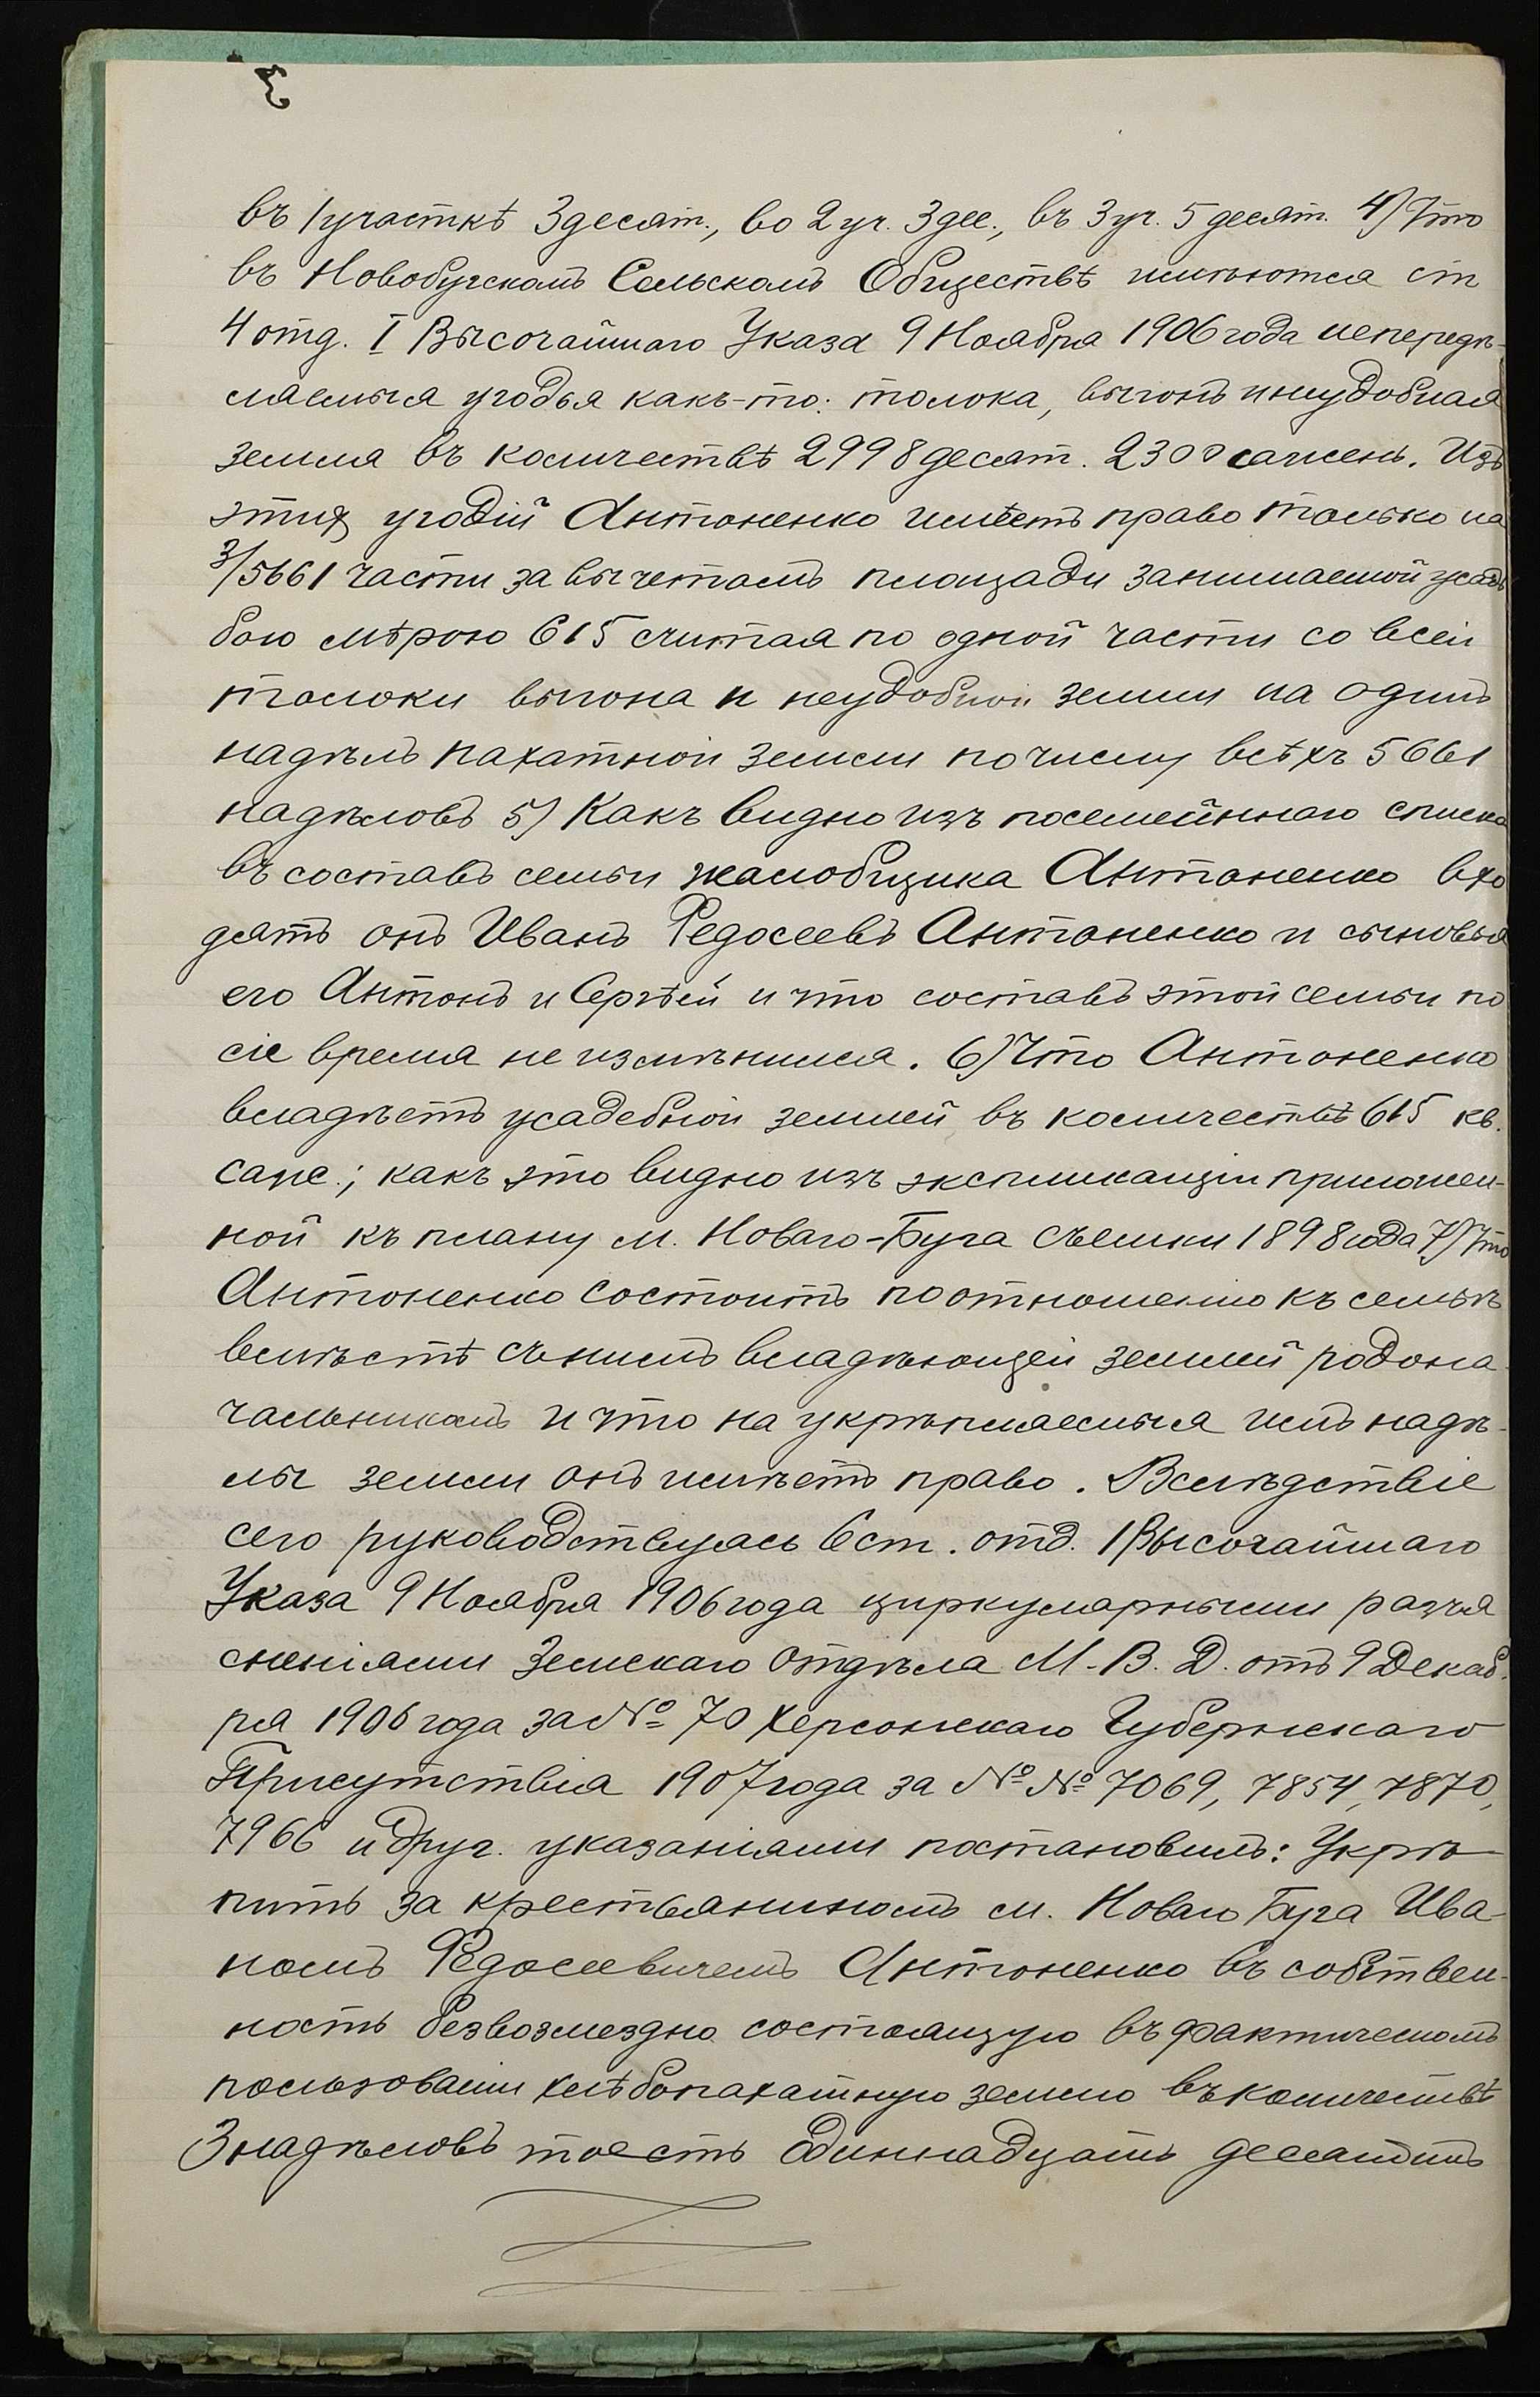 въ 1 участкѣ 3 десят., во 2 уч. 3 дес., въ 3 уч. 5 десят. 4) Что
въ Новобугскомъ Сельскомъ Обществѣ имѣются ст
4 отд. I Высочайшаго Указа 9 Ноября 1906 года непередѣ-
ляемыя угодья какъ-то: толока, выгонъ и неудобная
земля въ количествѣ 2998 десят. 2300 сажень. Изъ
этих угодій Антоненко имѣетъ право только на
3/5661 части за вычетомъ площади занимаемой усадь
бою мѣрою 615 считая по одной части со всей
толоки выгона и неудобной земли на одинъ
надѣлъ пахатной земли по числу всѣхъ 5661
надѣловъ 5) Какъ видно изъ посемейннаго списка
въ составъ семьи жалобщика Антоненко вхо
дятъ онъ Иванъ Федосеевъ Антоненко и сыновья
его Антонъ и Сергѣй и что составъ этой семьи по
сіе время не измѣнился. 6) Что Антоненко
владѣетъ усадебной землей въ количествѣ 615 кв.
саж.; какъ это видно изъ экспликаціи приложен-
ной къ плану м. Новаго-Буга съемки 1898 года 7) Что
Антоненко состоитъ по отношенію къ семьѣ
вмѣстѣ съ нимъ владѣющей землей родона
чальникомъ и что на укрѣпляемыя имъ надѣ-
лы земли онъ имѣетъ право. Вслѣдствіе
сего руководствуясь 6 ст. отд. I Высочайшаго
Указа 9 Ноября 1906 года циркулярными разъя
сненіями Земскаго Отдѣла М. В. Д. отъ 9 Декаб.
ря 1906 года за № 70 Херсонскаго Губернскаго
Присутствія 1907 года за №№ 7069, 7854, 7870,
7966 и друг. указаніями постановилъ: Укрѣ-
пить за крестьяниномъ м. Новаго Буга Ива-
номъ Федосеевичемъ Антоненко въ собствен-
ность безвозмездно состоящую въ фактическомъ
пользованіи хлѣбопахатную землю въ количествѣ
3 надѣловъ тоесть Одиннадцать десятинъ